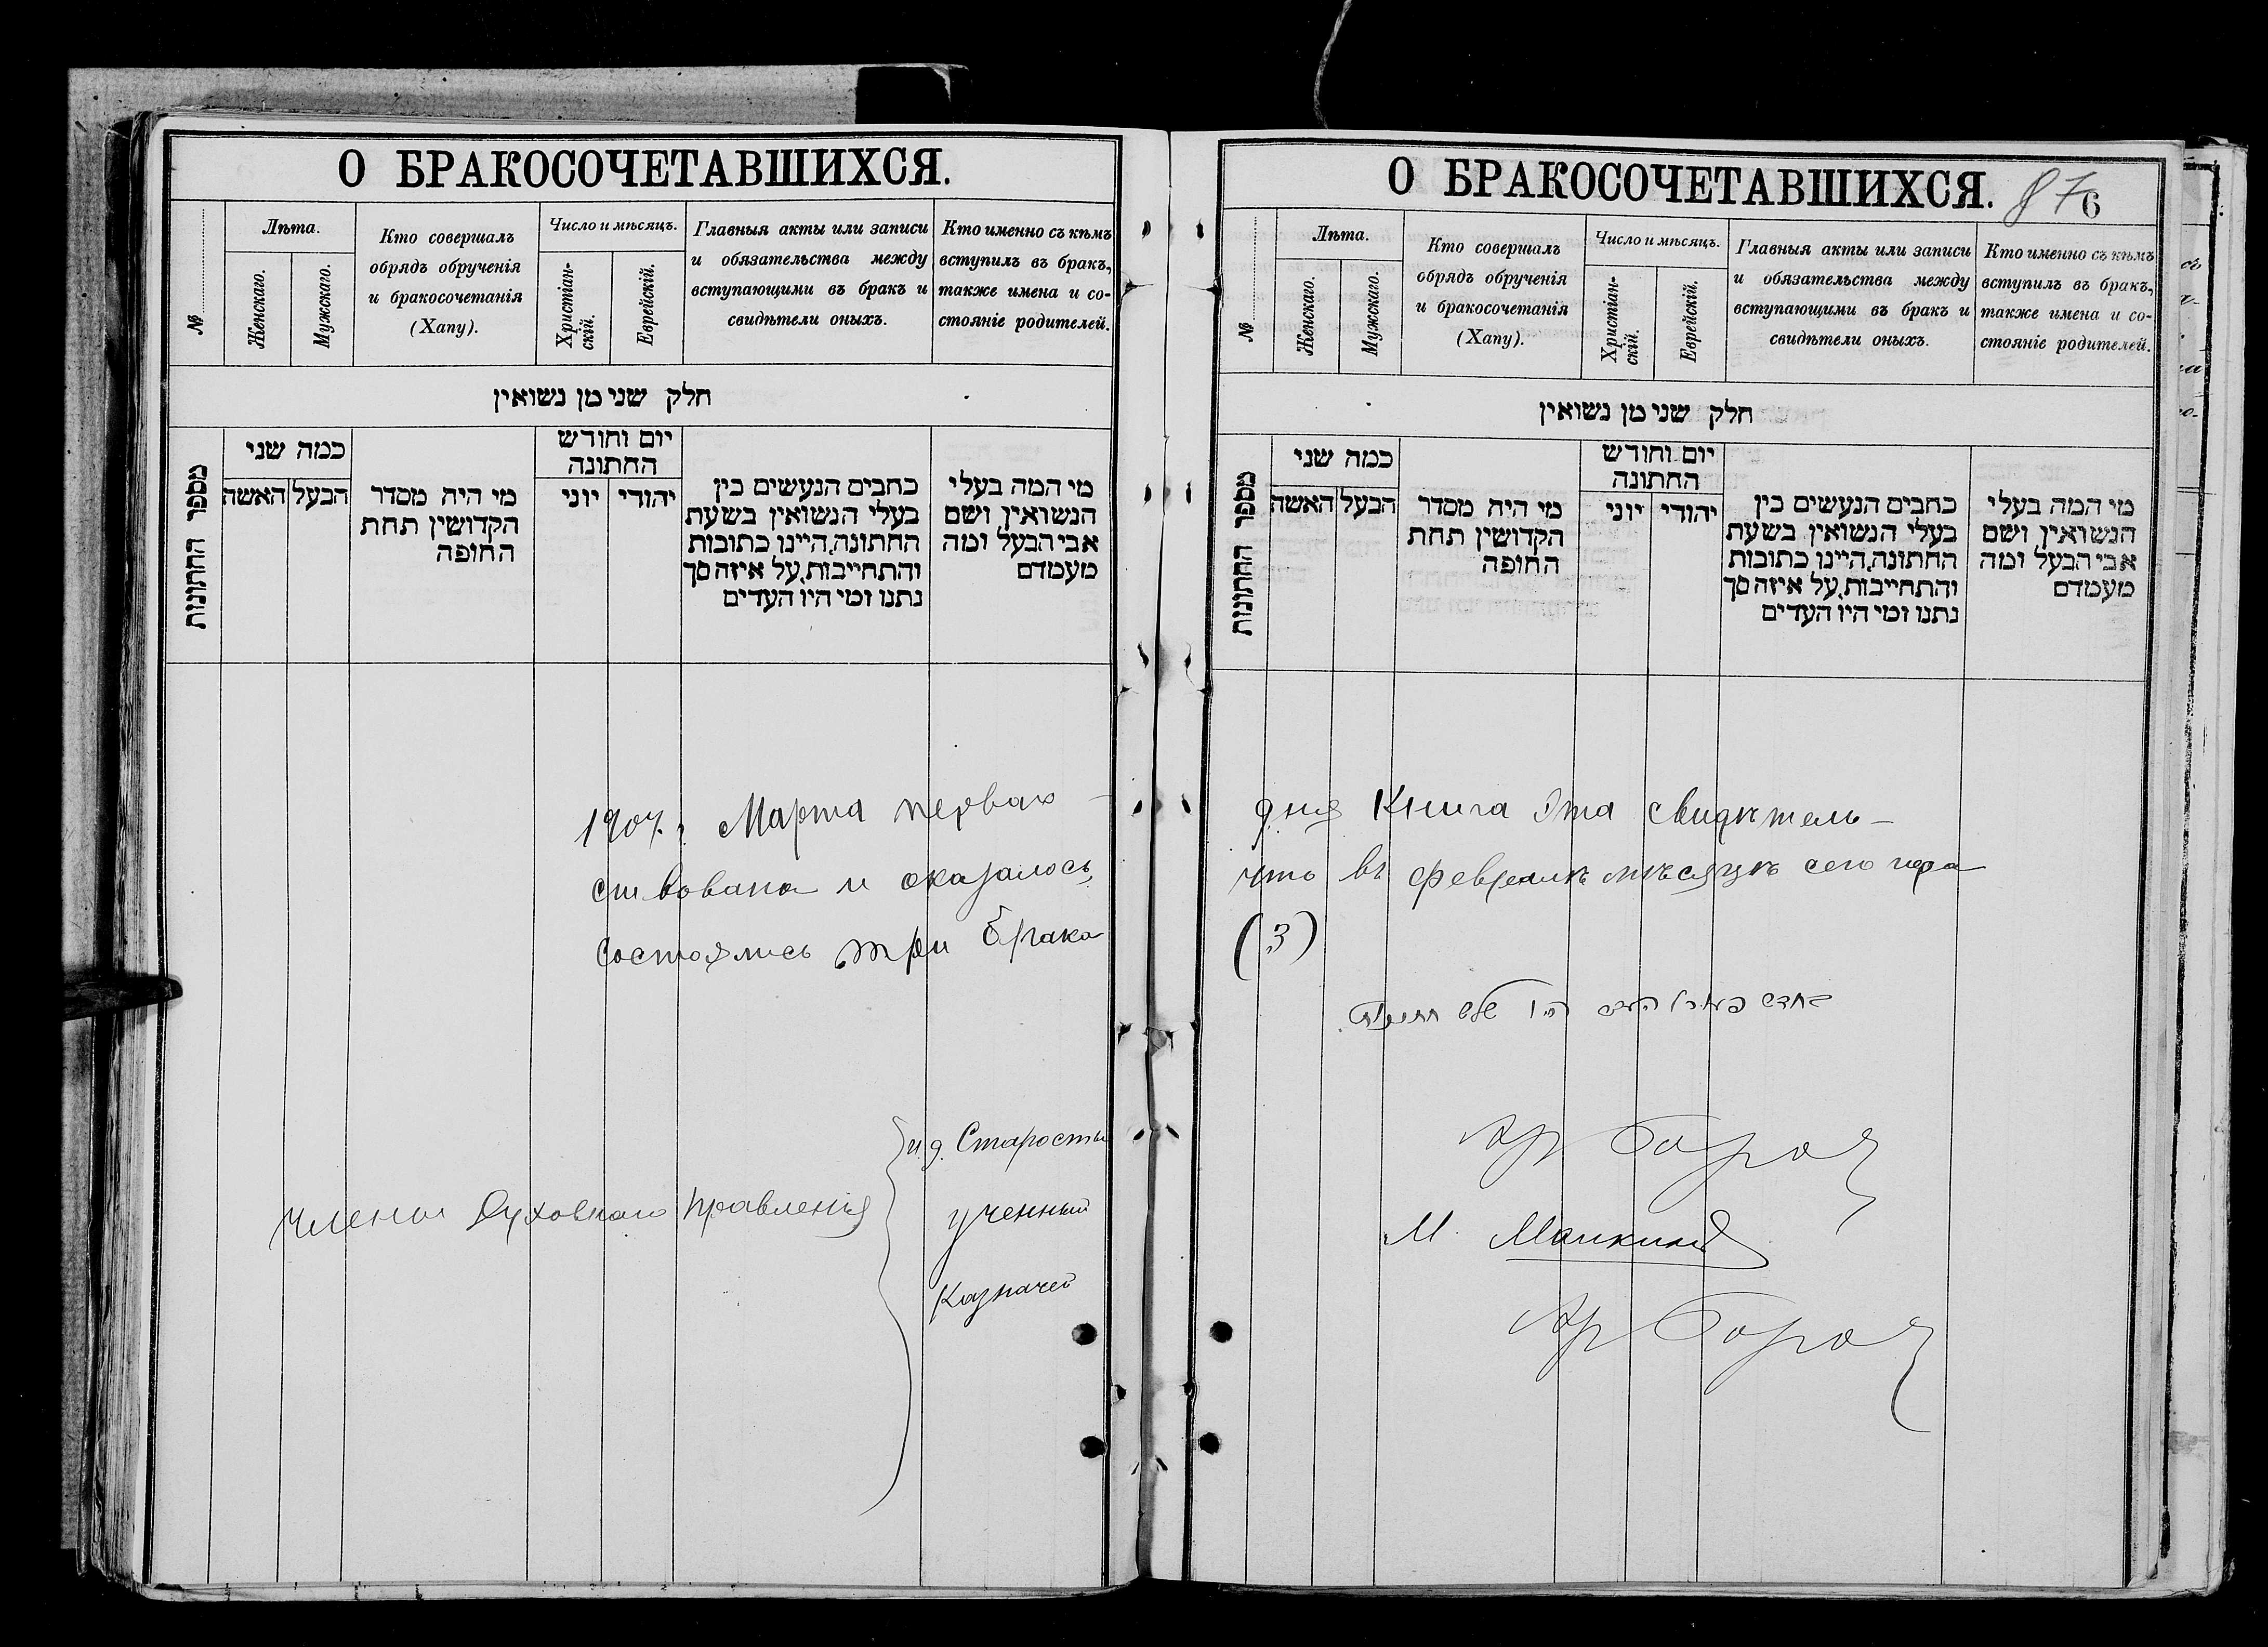 О БРАКОСОЧЕТАВШИХСЯ.
№
Лѣта.
Женскаго.
Мужскаго.
Кто совершалъ
обрядъ обрученія
и бракосочетанія
(Хапу).
Число и мѣсяцъ.
Христіан-
скій.
Еврейскій.
Главныя акты или записи
и обязательства между
вступающими въ бракъ и
свидѣтели оныхъ.
Кто именно съ кѣмъ
вступилъ въ бракъ,
также имена и со-
стояніе родителей.
חלק שני מן נשואין
מספר החתונות
כמה שני
האשה
הבעל
מי היה מסדר
הקדושין תחת
החופה
יום וחודש
החתונה
יוני
יהודי
כתבים הנעשים בין
בעלי הנשואין בשעת
החתונה, היינו כתובות
והתחייבות, על איזה סך
נתנו ומי היו העדים
מי המה בעלי
הנשואין ושם
אבי הבעל ומה
מעמדם
1907 г. Марта перваго
ствована и оказалось
состоялись три брака
Члены Духовнаго Правленія
и.д. Старосты
ученный
Казначей
О БРАКОСОЧЕТАВШИХСЯ.
87
6
№
Лѣта.
Женскаго.
Мужскаго.
Кто совершалъ
обрядъ обрученія
и бракосочетанія
(Хапу).
Число и мѣсяцъ.
Христіан-
скій.
Еврейскій.
Главныя акты или записи
и обязательства между
вступающими въ бракъ и
свидѣтели оныхъ.
Кто именно съ кѣмъ
вступилъ въ бракъ,
также имена и со-
стояніе родителей.
חלק שני מן נשואין
מספר החתונות
כמה שני
האשה
הבעל
מי היה מסדר
הקדושין תחת
החופה
יום וחודש
החתונה
יוני
יהודי
כתבים הנעשים בין
בעלי הנשואין בשעת
החתונה, היינו כתובות
והתחייבות, על איזה סך
נתנו ומי היו העדים
מי המה בעלי
הנשואין ושם
אבי הבעל ומה
מעמדם
дня Книга эта свидѣтель-
что въ февралѣ мѣсяцѣ сего года
(3)
היו שלש חתונות
М.